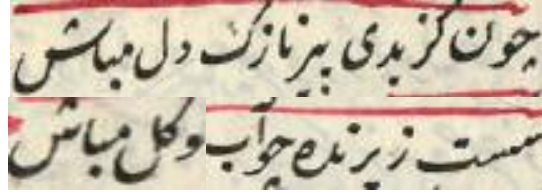 چون گزیدی پیر نازک دل مباش
سست و ریزنده چو آب و گل مباش